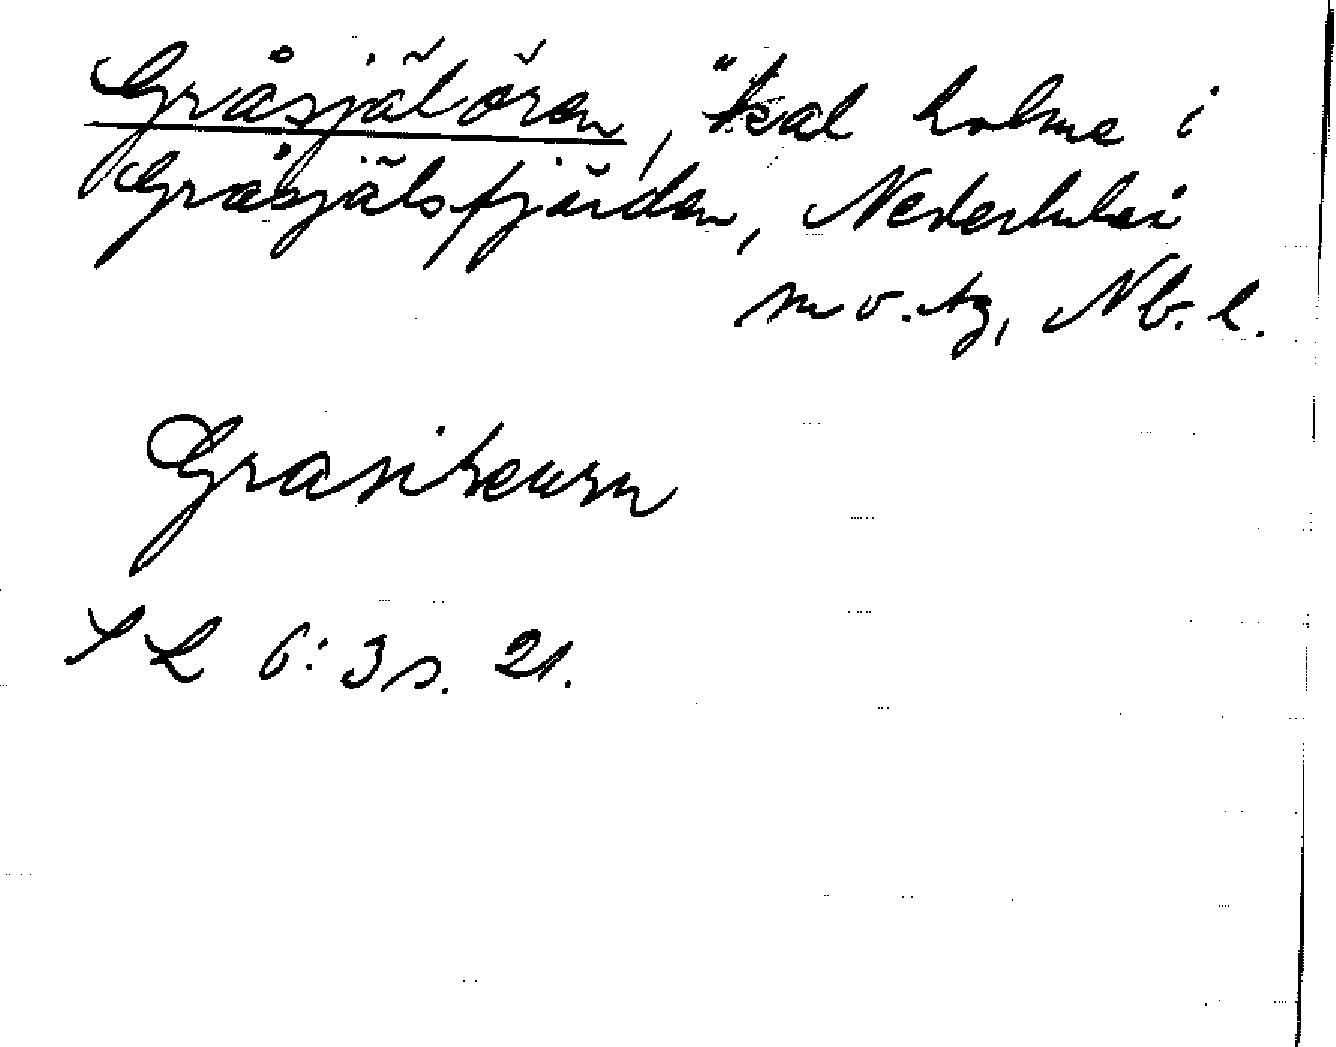 Gråsjälören, "kal holme i
Gråsjälsfjärden, Nederluleå
sn o. tg, Nb. l.
Grasikeurn
SL 6:3 s. 21.